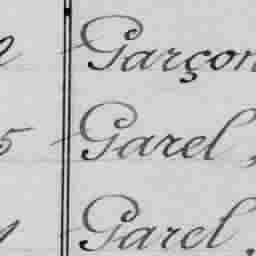 Garçon
5 Garel,
Garel,